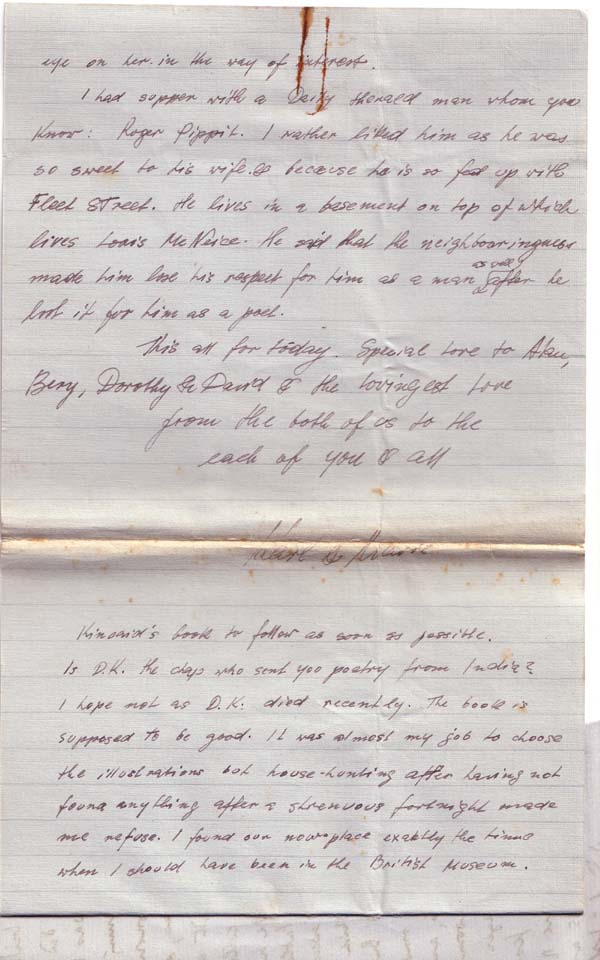 eye on her in the way of interest.
I had supper with a Daily Herald man whom you
know: Roger Pippit. I rather liked him as he was
so sweet to his wife. & because he is so fed up with
Fleet Street. He lives in a basement on top of which
lives Louis McNeice. He said that the neighbouringness
made him lose his respect for him as a man as well after he
lost it for him as a poet.
This all for today. Special love to Alan,
Bery, Dorothy & David & the lovingest love
from the both of us to the
each of you & all
&
Kincaid's book to follow as soon as possible.
Is D.K. the chap who sent you poetry from India?
I hope not as D.K. died recently. The book is
supposed to be good. It was almost my job to choose
the illustrations but house-hunting after having not
found anything after a strenuous fortnight made
me refuse. I found our now-place exaktly the time
when I should have been in the British Museum.